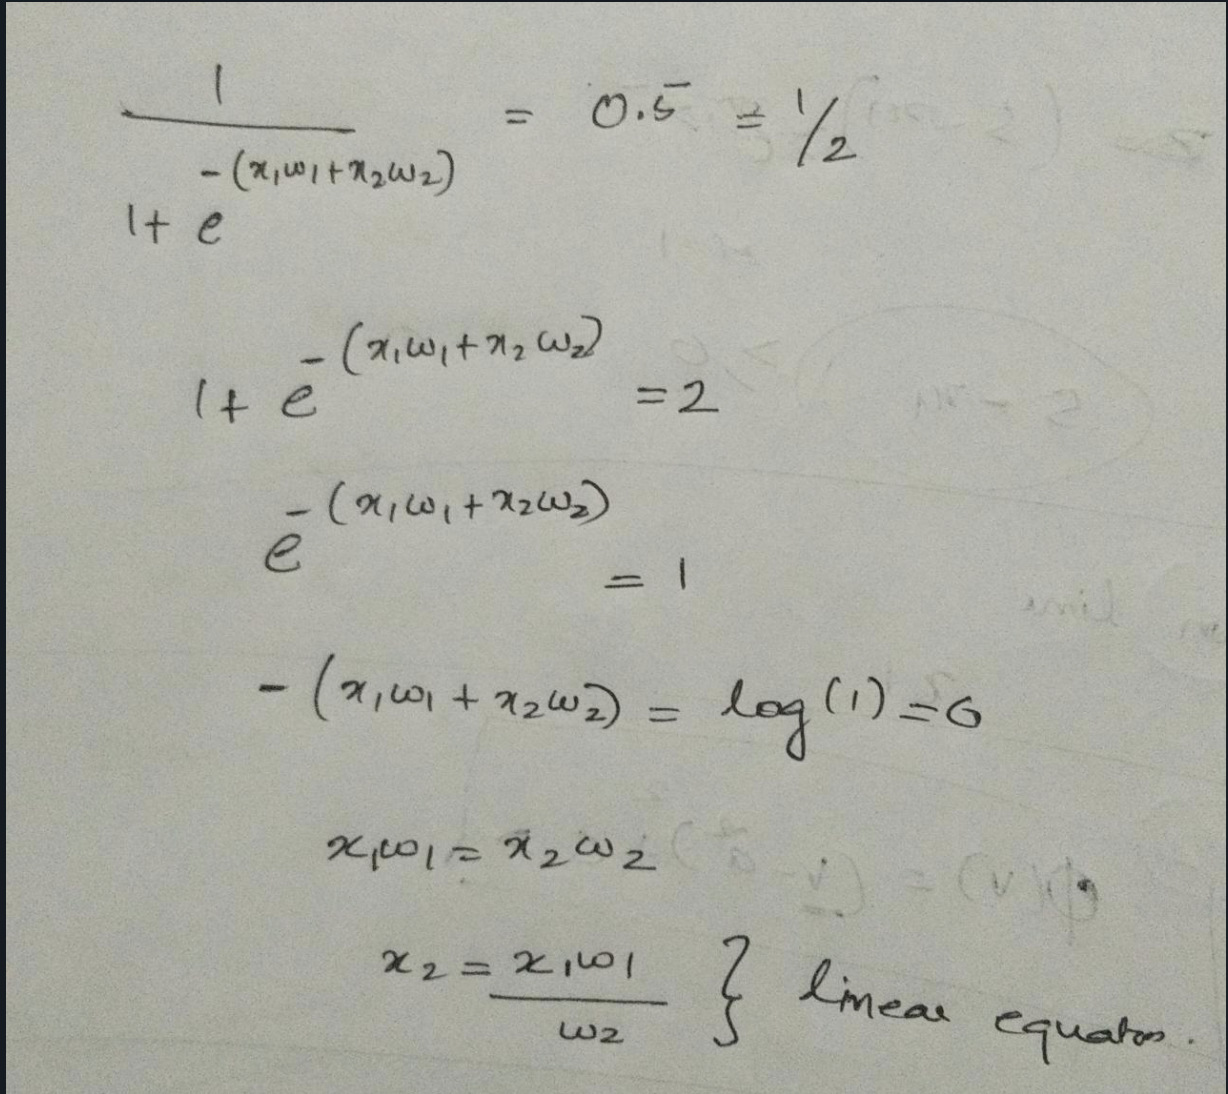 1 / (1 + e^-(x₁ω₁ + x₂ω₂)) = 0.5 = 1/2
1 + e^-(x₁ω₁ + x₂ω₂) = 2
e^-(x₁ω₁ + x₂ω₂) = 1
-(x₁ω₁ + x₂ω₂) = log(1) = 0
x₁ω₁ = x₂ω₂
x₂ = x₁ω₁ / ω₂ } linear equaton.